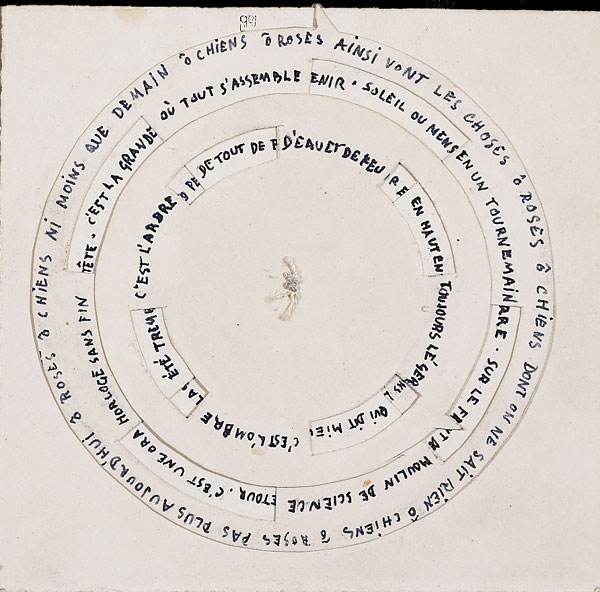 ô ROSES AINSI VONT LES CHOSES ô ROSES ô CHIENS DONT ON NE SAIT RIEN ô CHIENS ô ROSES PAS PLUS AUJOURD'HUI ô ROSES ô CHIENS NI MOINS QUE DEMAIN ô CHIENS
ENIR . SOLEIL OU MENS EN UN TOURNEMAIN RE . SUR LE FR MOULIN DE SCIENCE ETOUR . C'EST UNE ORA HORLOGE SANS FIN TÊTE . C'EST LA GRANDE OÙ TOUT S'ASSEMBLE
D'EAU ET DE FEU RE EN HAUT EN TOUJOURS LÉGER QUI DIT MIE C'EST L'OMBRE LA ÉTÉ TREM C'EST L'ARBRE PE DE TOUT DE